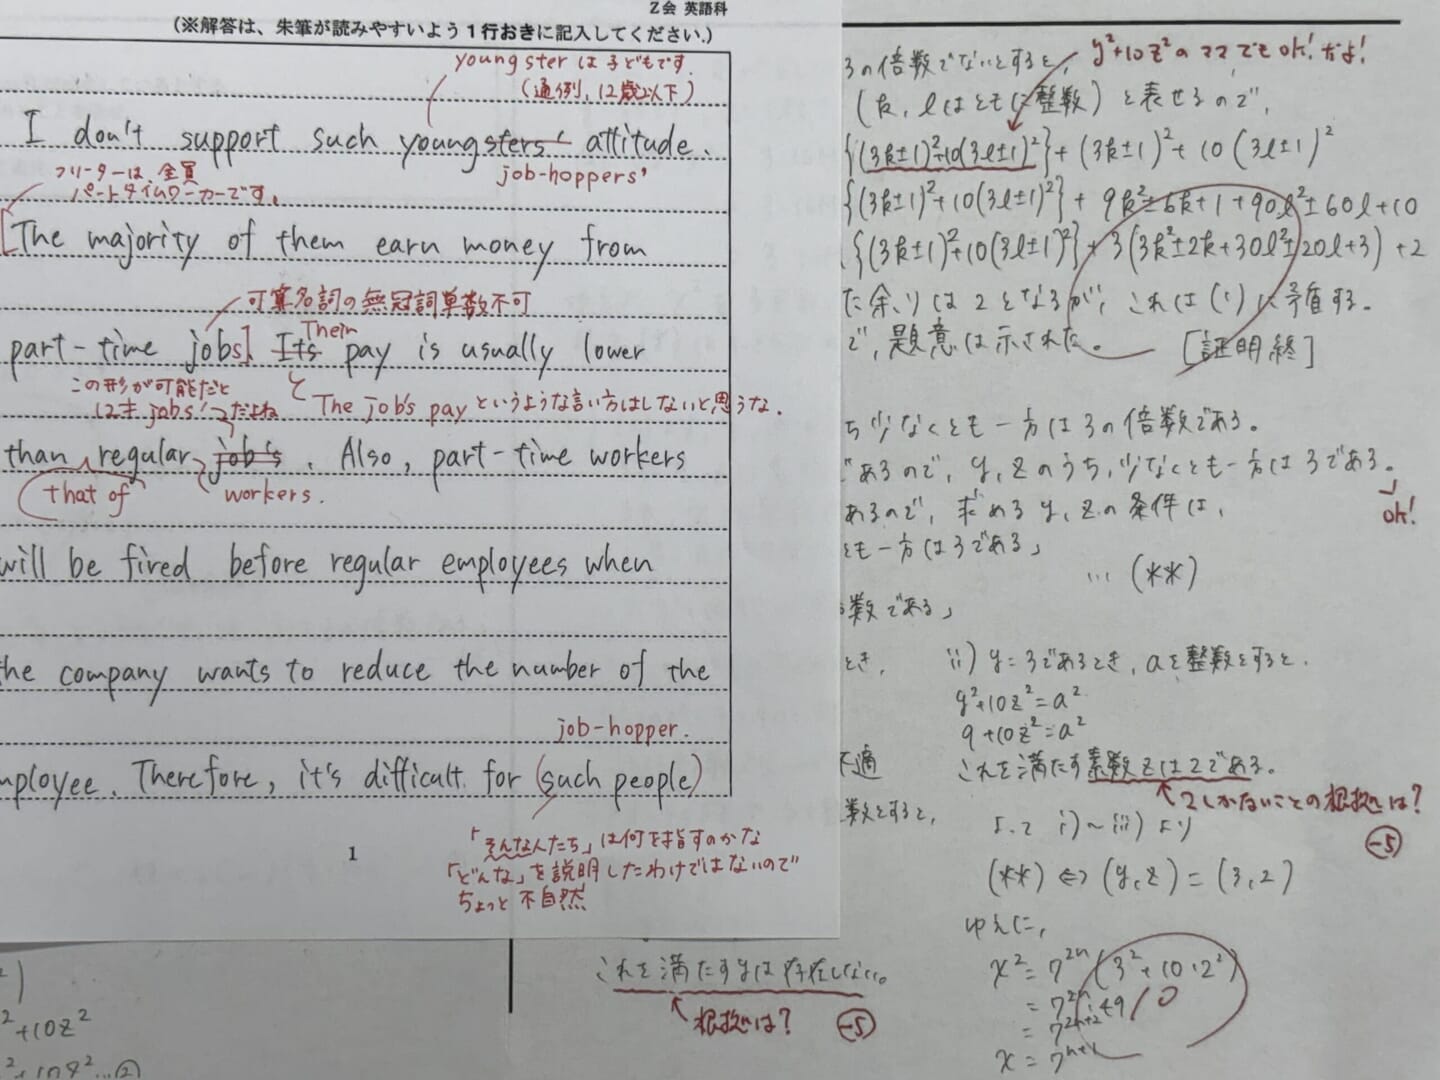 Z会 英語科
(※解答は、朱筆が読みやすいよう1行おきに記入してください.)
youngster は子どもです.
(通例,12歳以下)
I don't support such youngsters' attitude.
job-hoppers'
フリーターは、全員
パートタイムワーカーです。
[The majority of them earn money from
可算名詞の無冠詞単数不可
Their
part-time jobs]. Its pay is usually lower
この形が可能だと
は才 jobs' だよね
The job's pay というような言い方はしないと思うな.
than regular job's. Also, part-time workers
that of
workers.
will be fired before regular employees when
the company wants to reduce the number of the
job-hopper.
mployee. Therefore, it's difficult for (such people)
「そんな人たち」は何を指すのかな
「どんな」を説明したわけではないので
ちょっと不自然
1
y²+10z²のママでもok!だよ!
3の倍数でないとすると,
(k, lはともに整数)と表せるので,
{(3k±1)²+10(3l±1)²}+(3k±1)²+10(3l±1)²
{(3k±1)²+10(3l±1)²}+9k²±6k+1+90l²±60l+10
{(3k±1)²+10(3l±1)²}+3(3k²±2k+30l²±20l+3)+2
た余りは2となるが, これは(1)に矛盾する。
で,題意は示された。 [証明終]
ち少なくとも一方は3の倍数である。
であるので, y, zのうち,少なくとも一方は3である。
ok!
あるので, 求めるy, zの条件は,
とも一方は3である」
… (**)
数である」
とき,
ii) y=3であるとき, aを整数とすると,
y²+10z²=a²
9+10z²=a²
不適
これを満たす素数zは2である。
2しかないことの根拠は?
-5
数とすると,
よって i)~iii)より
(**)⇔(y,z)=(3,2)
ゆえに,
x²=7²ⁿ(3²+10・2²)
=7²ⁿ・49
10
=7²ⁿ⁺²
x=7ⁿ⁺¹
これを満たすyは存在しない。
根拠は?
-5
²+10z²